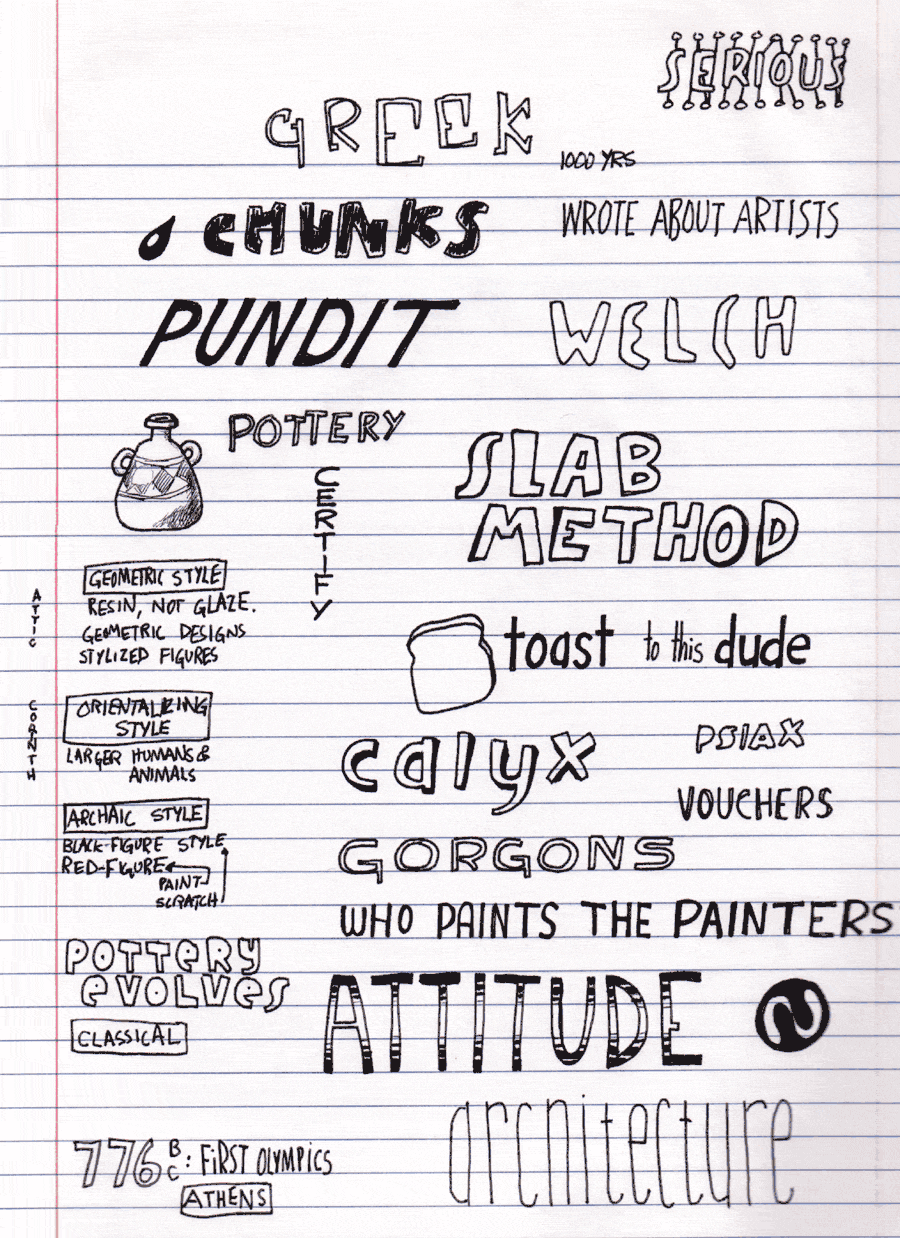 SERIOUS
GREEK
1000 YRS
CHUNKS
WROTE ABOUT ARTISTS
PUNDIT
WELCH
POTTERY
CERTIFY
SLAB
METHOD
GEOMETRIC STYLE
RESIN, NOT GLAZE.
GEOMETRIC DESIGNS
STYLIZED FIGURES
ATTIC
toast to this dude
ORIENTALIZING
STYLE
LARGER HUMANS &
ANIMALS
CORINTH
calyx
PSIAX
VOUCHERS
ARCHAIC STYLE
BLACK-FIGURE STYLE
RED-FIGURE
PAINT
SCRATCH
GORGONS
WHO PAINTS THE PAINTERS
POTTERY
eVOLVES
CLASSICAL
ATTITUDE
N
architecture
776 BC: FIRST OLYMPICS
ATHENS